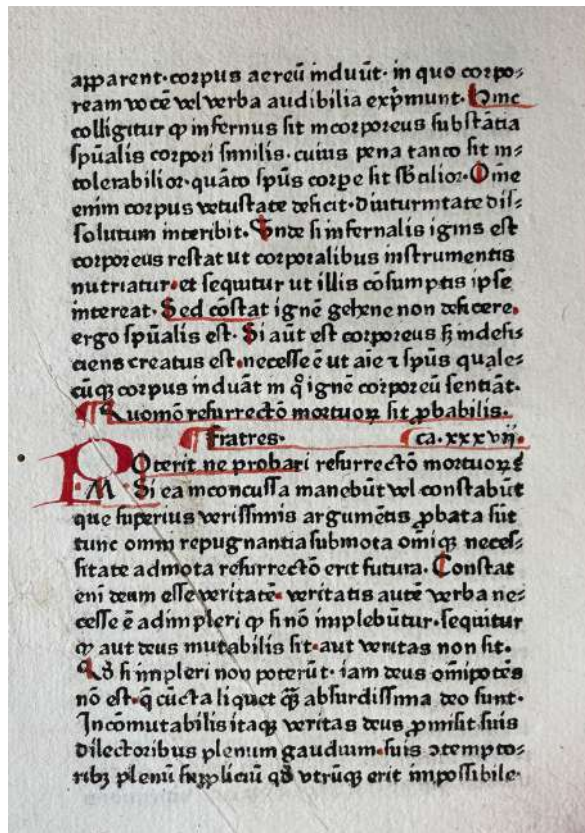 apparent· corpus aereū induūt· in quo corpo⸗
ream vocē vel verba audibilia exp̄munt· Hinc
colligitur ꝙ infernus sit incorporeus substātia
spūalis corpori similis· cuius pena tanto sit in⸗
tolerabilior· quāto spūs corpe sit sb̄tilior· Om̄e
enim corpus vetustate deficit· diuturnitate dis⸗
solutum interibit· Vnde si infernalis ignis est
corporeus restat ut corporalibus instrumentis
nutriatur· et sequitur ut illis cōsumptis ipse
intereat· Sed cōstat ignē gehēne non deficere·
ergo spūalis est· Si aūt est corporeus sꝫ indefi⸗
ciens creatus est· necesse ē ut aīe ⁊ spūs quale⸗
cūqꝫ corpus induāt in qͦ ignē corporeū sentiāt·
¶ Quomō resurrectō mortuoꝝ sit ꝓbabilis.
¶ Fratres· ¶ ca. xxxvij·
POterit ne probari resurrectō mortuoꝝ ꝭ
·M· Si ea inconcussa manebūt vel constabūt
que superius verissimis argumētis ꝓbata sūt
tunc omni repugnantia submota om̄iqꝫ neces⸗
sitate admota resurrectō erit futura. Constat
eni deum esse veritatē· veritatis autē verba ne⸗
cesse ē adimpleri ꝙ si nō implebūtur· sequitur
ꝙ aut deus mutabilis sit· aut veritas non sit·
Qd̄ si impleri non poterūt· iam deus om̄ipotēs
nō est· q̄ cūcta liquet qꝙ absurdissima deo sunt·
Incōmutabilis itaqꝫ veritas deus ꝓmisit suis
dilectoribus plenum gaudium· suis ↄtempto⸗
ribꝫ plenū suppliciū qd̄ vtrūqꝫ erit impossibile·